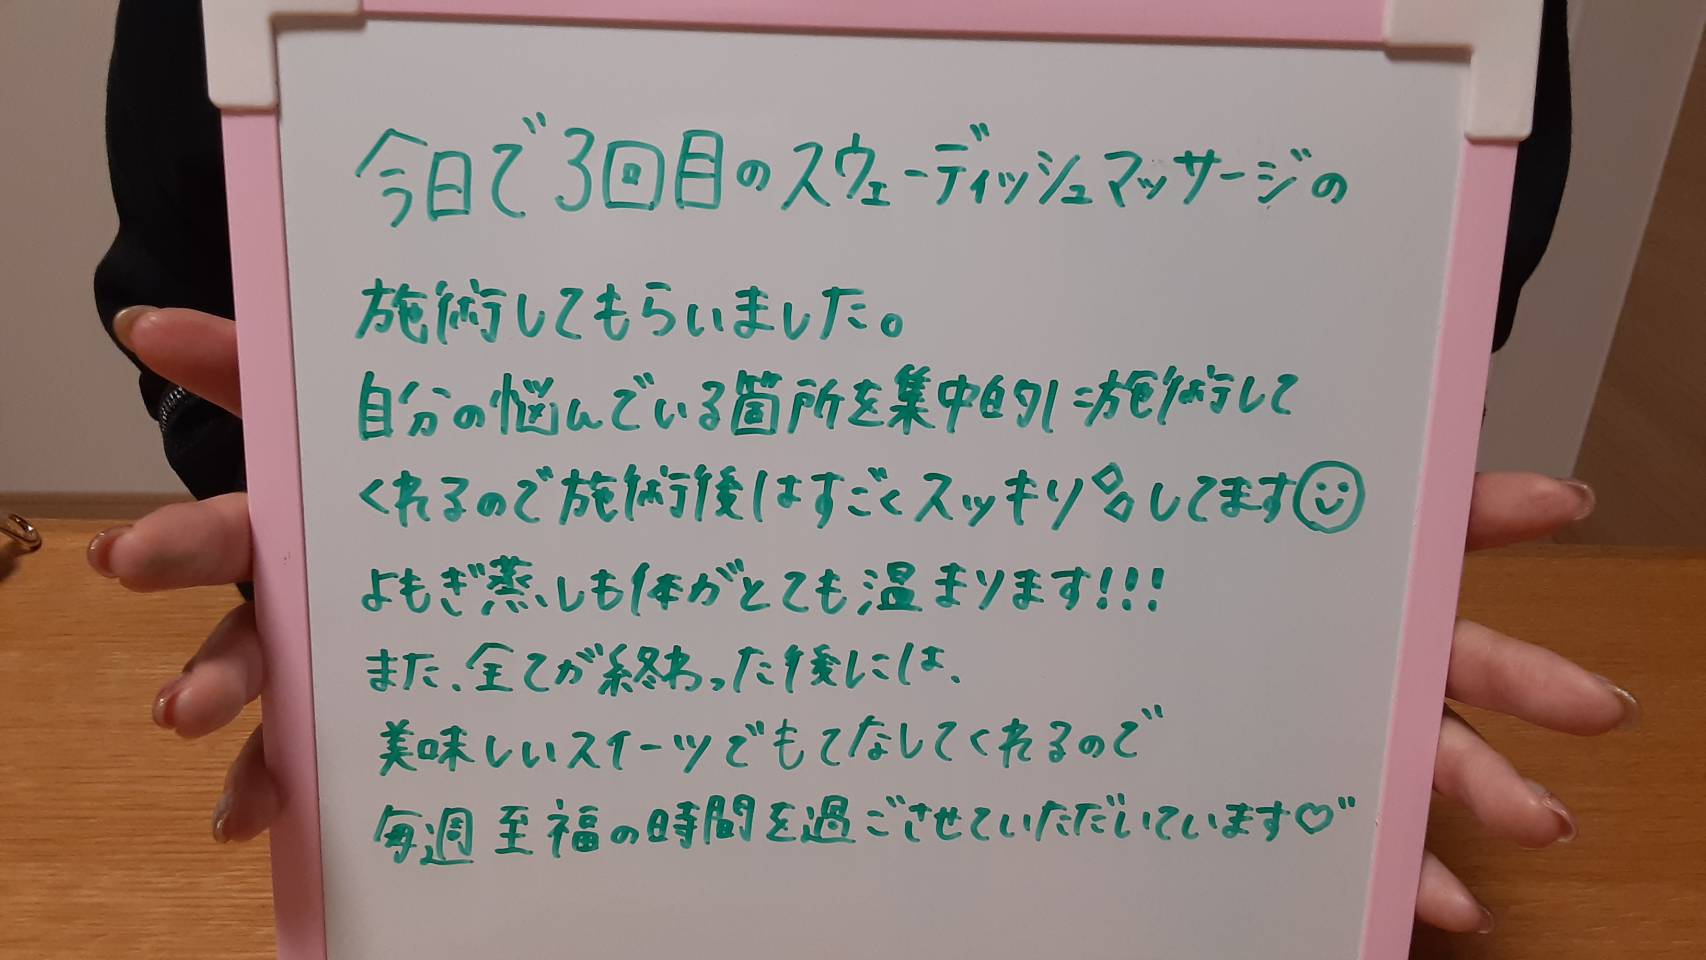 今日で3回目のスウェーディッシュマッサージの
施術してもらいました。
自分の悩んでいる箇所を集中的に施術して
くれるので施術後はすごくスッキリしてます
よもぎ蒸しも体がとても温まります!!!
また、全てが終わった後には、
美味しいスイーツでもてなしてくれるので
毎週至福の時間を過ごさせていただいています♡